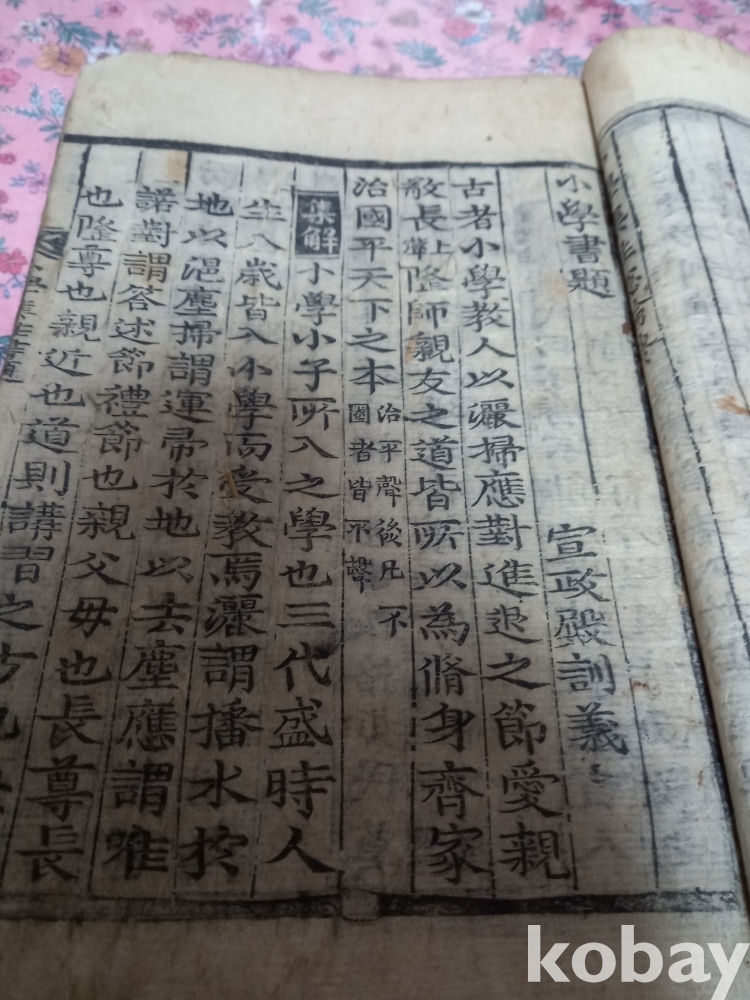 小學書題
宣政殿訓義
古者小學教人以灑掃應對進退之節愛親
敬長上聲隆師親友之道皆所以為脩身齊家
治國平天下之本治平聲後凡不
圈者皆不聲
集解小學小子所入之學也三代盛時人
生八歲皆入小學而受教焉灑謂播水於
地以浥塵掃謂運帚於地以去塵應謂唯
諾對謂答述節禮節也親父母也長尊長
也隆尊也親近也道則講習之方
kobay